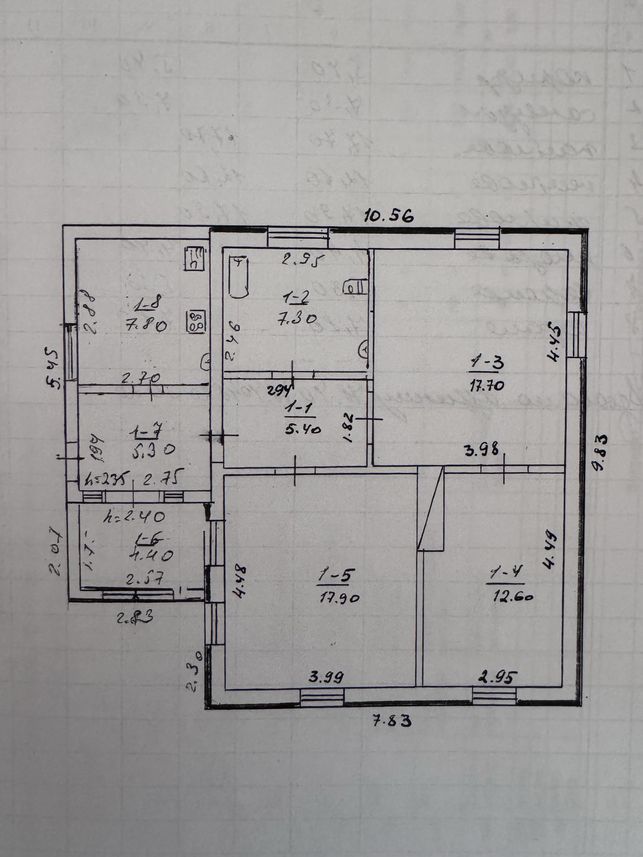 10.56
2.95
1-8
7.80
2.88
1-2
7.30
2.46
1-3
17.70
4.45
5.45
2.70
294
1-1
5.40
1.82
1-7
5.30
1.94
3.98
9.83
h=235
2.75
h=2.40
1-6
2.57
2.83
4.48
1-5
17.90
1-4
12.60
4.49
2.30
3.99
2.95
7.83